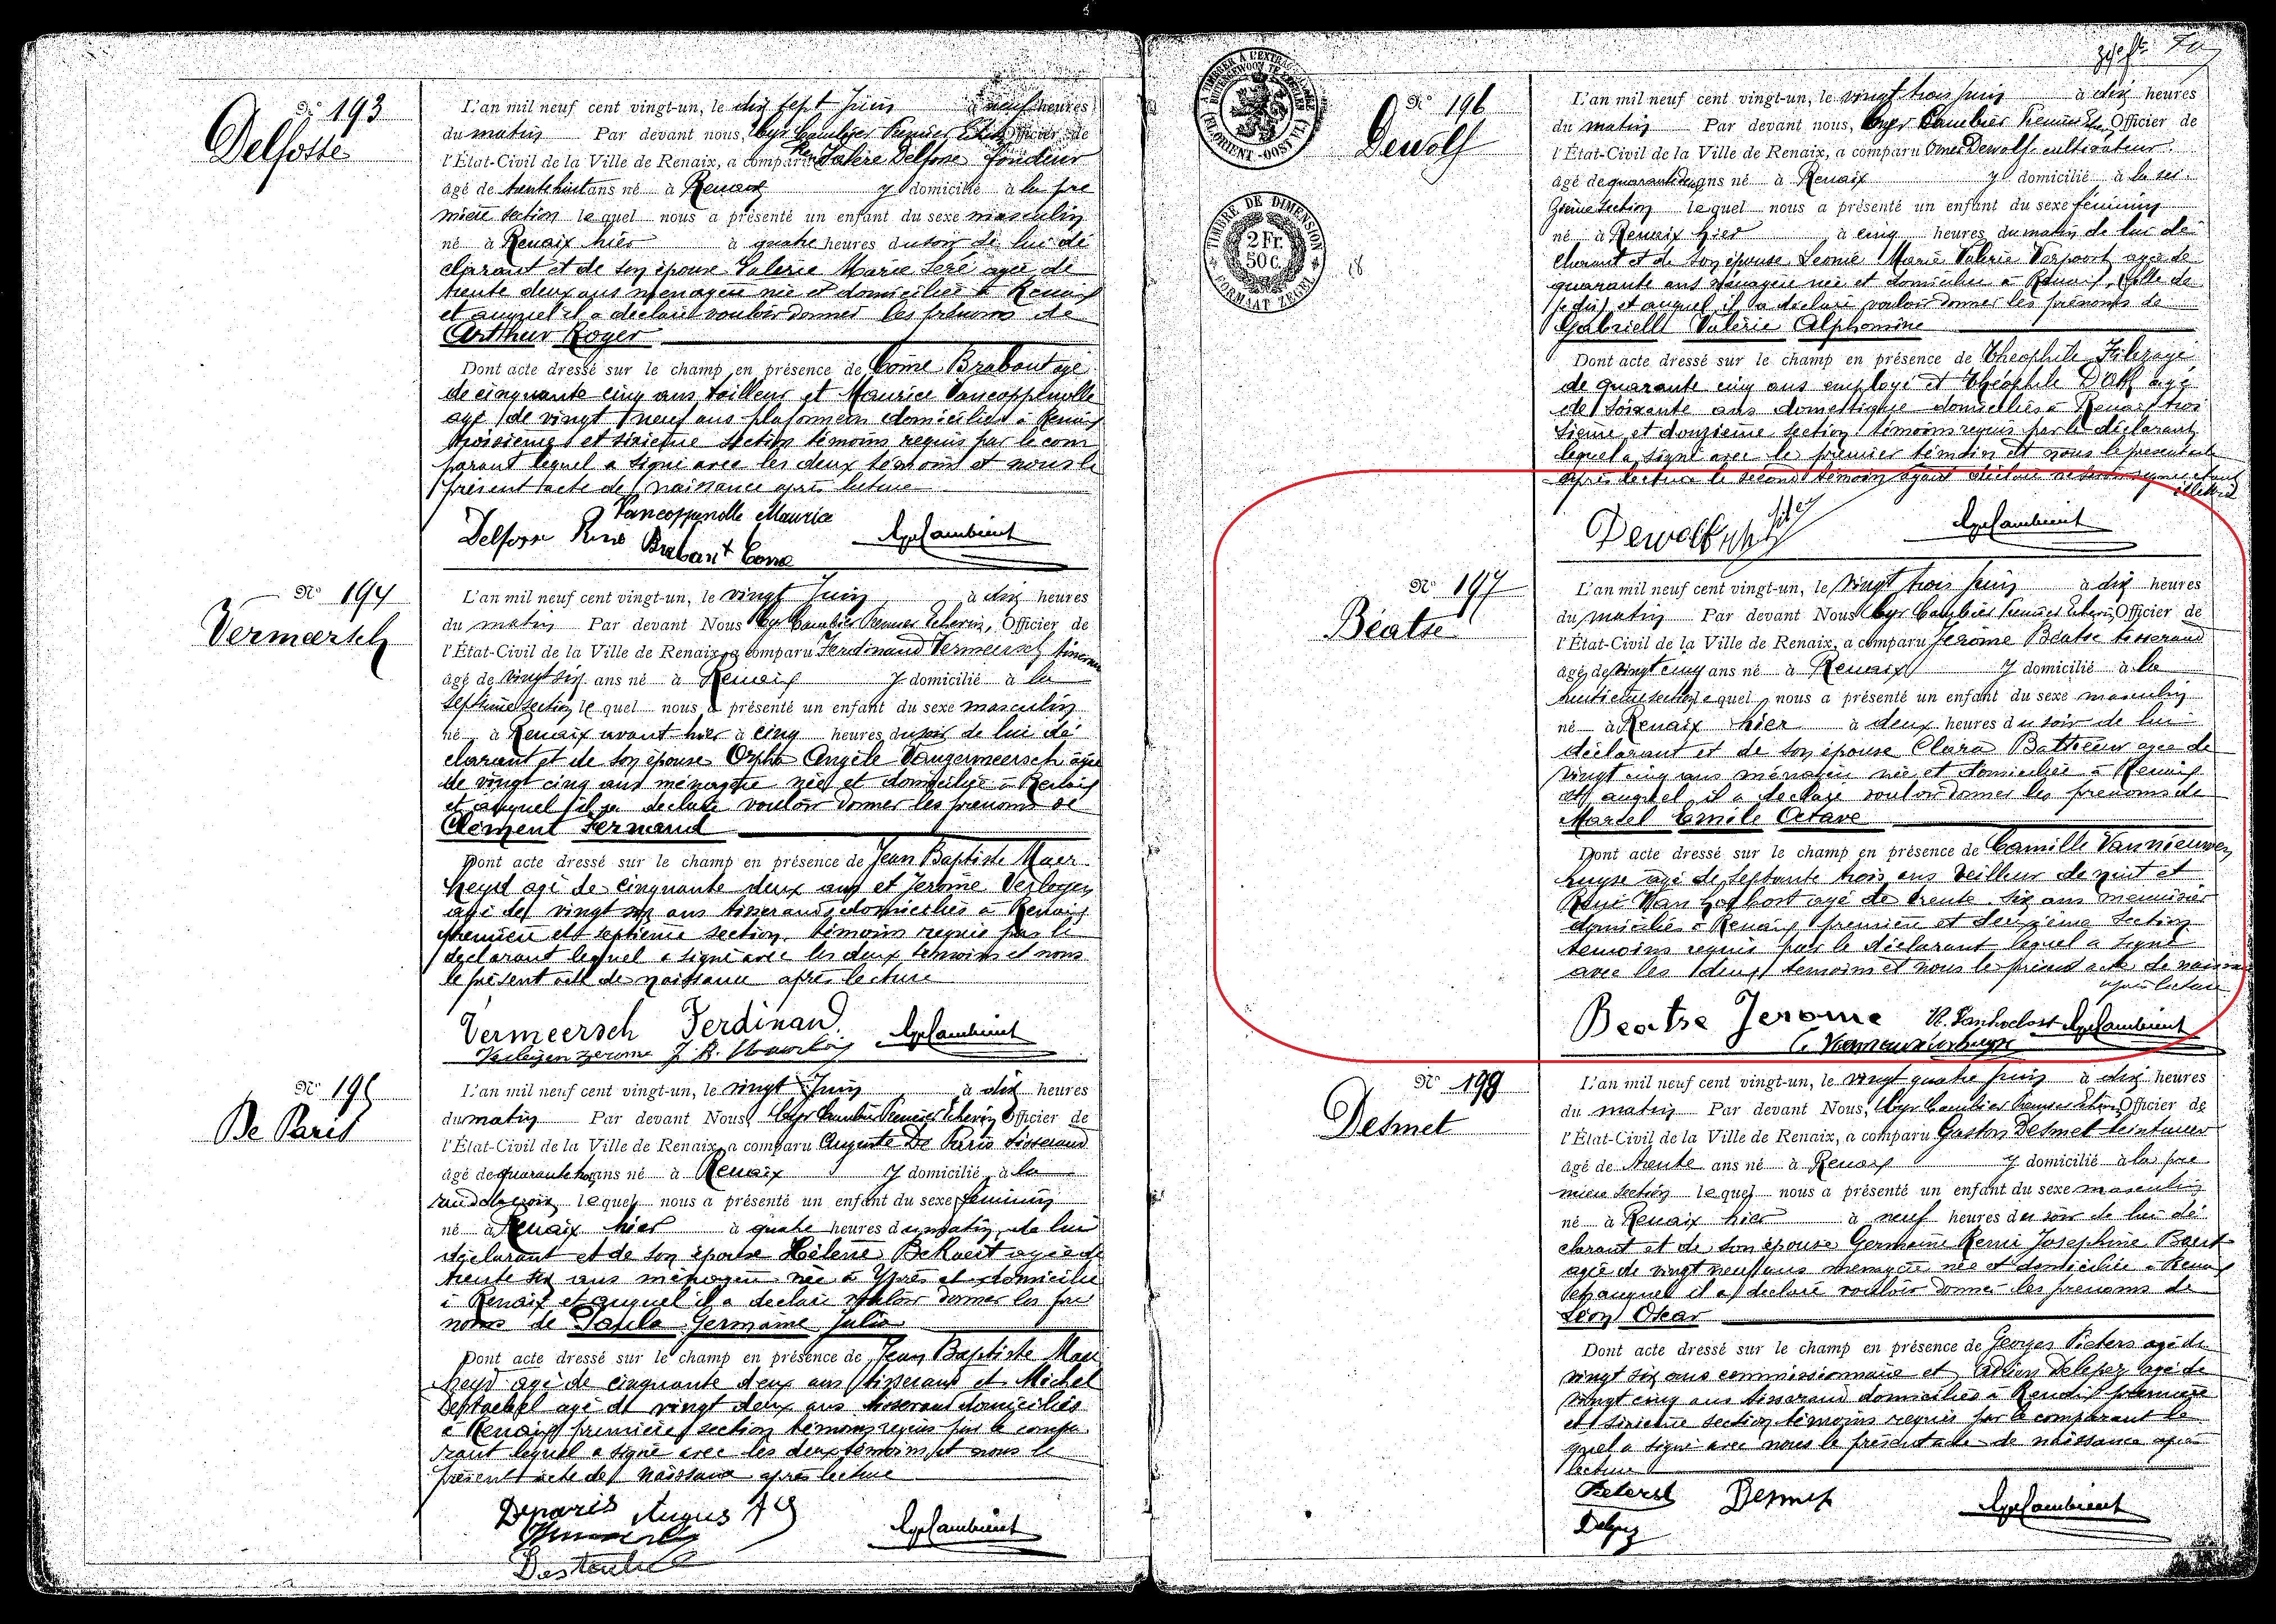 N° 193
Delfosse
L'an mil neuf cent vingt-un, le dix sept Juin à neuf heures
du matin Par devant nous, Cyr Cambier Premier Echevin Officier de
l'État-Civil de la Ville de Renaix, a comparu Valère Delfosse fondeur
âgé de trente huit ans né à Renaix y domicilié à la pre
mière section lequel nous a présenté un enfant du sexe masculin
né à Renaix hier à quatre heures du soir de lui dé
clarant et de son épouse Valérie Marie agée de
trente deux ans ménagère née et domiciliée à Renaix
et auquel il a déclaré vouloir donner les prénoms de
Arthur Roger
Dont acte dressé sur le champ en présence de Côme Brabant agé
de cinquante cinq ans tailleur et Maurice Vancoppenolle
agé de vingt neuf ans plafonneur domiciliés à Renaix
troisième et sixième section témoins requis par le com
parant lequel a signé avec les deux témoins et nous le
présent acte de naissance après lecture
Vancoppenolle Maurice
Delfosse René Brabant Come
N° 194
Vermeersch
L'an mil neuf cent vingt-un, le vingt Juin à dix heures
du matin Par devant Nous Cyr Cambier Premier Echevin, Officier de
l'État-Civil de la Ville de Renaix, a comparu Ferdinand Vermeersch tisserand
âgé de vingt six ans né à Renaix y domicilié à la
septième section lequel nous a présenté un enfant du sexe masculin
né à Renaix avant hier à cinq heures du soir de lui dé
clarant et de son épouse Orpha Angèle Vangermeersch agée
de vingt cinq ans ménagère née et domiciliée à Renaix
et auquel il a déclaré vouloir donner les prénoms de
Clément Fernand
Dont acte dressé sur le champ en présence de Jean Baptiste Maer
heyd agé de cinquante deux ans et Jerôme Verleyen
agé de vingt six ans tisserands domiciliés à Renaix
première et septième section témoins requis par le
déclarant lequel a signé avec les deux témoins et nous
le présent acte de naissance après lecture
Vermeersch Ferdinand
Verleyen Jerome J. B.
N° 195
De Paris
L'an mil neuf cent vingt-un, le vingt Juin à dix heures
du matin Par devant Nous, Cyr Cambier Premier Echevin Officier de
l'État-Civil de la Ville de Renaix, a comparu Auguste De Paris tisserand
âgé de quarante ans né à Renaix y domicilié à la
lequel nous a présenté un enfant du sexe féminin
né à Renaix hier à quatre heures du matin de lui
déclarant et de son épouse Hélène agée de
trente six ans ménagère née à Ypres et domiciliée
à Renaix et auquel il a déclaré vouloir donner les pré
noms de Paula Germaine Julia
Dont acte dressé sur le champ en présence de Jean Baptiste Maer
heyd agé de cinquante deux ans tisserand et Michel
agé de vingt deux ans tisserand domiciliés
à Renaix première section témoins requis par le compa
rant lequel a signé avec les deux témoins et nous le
présent acte de naissance après lecture
Deparis
À TIMBRER À L'EXTRAORDINAIRE
BUITENGEWOON TE ZEGELEN
(FL. ORIENT - OOST VL.)
TIMBRE DE DIMENSION
2 Fr.
50 c.
FORMAAT ZEGEL
N° 196
Dewolf
L'an mil neuf cent vingt-un, le vingt trois Juin à dix heures
du matin Par devant nous, Cyr Cambier Premier Echevin Officier de
l'État-Civil de la Ville de Renaix, a comparu Omer Dewolf cultivateur
âgé de quarante deux ans né à Renaix y domicilié à la sei
zième section lequel nous a présenté un enfant du sexe féminin
né à Renaix hier à cinq heures du matin de lui dé
clarant et de son épouse Léonie Marie Valérie Verpoort agée de
quarante ans ménagère née et domiciliée à Renaix, (ville de
je dis) et auquel il a déclaré vouloir donner les prénoms de
Gabrielle Valérie Alphonsine
Dont acte dressé sur le champ en présence de Théophile agé
de quarante cinq ans employé et Théophile agé
de soixante ans domestique domiciliés à Renaix troi
sième et douzième section témoins requis par le déclarant
lequel a signé avec le premier témoin et nous le présent acte
après lecture le second témoin ayant déclaré ne savoir signer étant
illettré
Dewolf
N° 197
Béatse
L'an mil neuf cent vingt-un, le vingt trois Juin à dix heures
du matin Par devant Nous Cyr Cambier Premier Echevin, Officier de
l'État-Civil de la Ville de Renaix, a comparu Jerôme Béatse tisserand
âgé de vingt cinq ans né à Renaix y domicilié à la
huitième section lequel nous a présenté un enfant du sexe masculin
né à Renaix hier à deux heures du soir de lui
déclarant et de son épouse Clara Battheeuw agée de
vingt cinq ans ménagère née et domiciliée à Renaix
et auquel il a déclaré vouloir donner les prénoms de
Marcel Camile Octave
Dont acte dressé sur le champ en présence de Camille Vannieuwen
huyse agé de septante trois ans veilleur de nuit et
René Van agé de trente six ans menuisier
domiciliés à Renaix première et seizième section
témoins requis par le déclarant lequel a signé
avec les deux témoins et nous le présent acte de naissance
après lecture
Beatse Jerome
N° 198
Desmet
L'an mil neuf cent vingt-un, le vingt quatre Juin à dix heures
du matin Par devant Nous, Cyr Cambier Premier Echevin, Officier de
l'État-Civil de la Ville de Renaix, a comparu Gaston Desmet teinturier
âgé de trente ans né à Renaix y domicilié à la pre
mière section lequel nous a présenté un enfant du sexe masculin
né à Renaix hier à neuf heures du soir de lui dé
clarant et de son épouse Germaine Remi Josephine Baert
agée de vingt neuf ans ménagère née et domiciliée à Renaix
et auquel il a déclaré vouloir donner les prénoms de
Léon Oscar
Dont acte dressé sur le champ en présence de Georges Pieters agé de
vingt six ans commissionnaire et Adrien Delepez agé de
vingt cinq ans tisserand domiciliés à Renaix première
et sixième section témoins requis par le comparant le
quel a signé avec nous le présent acte de naissance après
lecture
Pieters Desmet